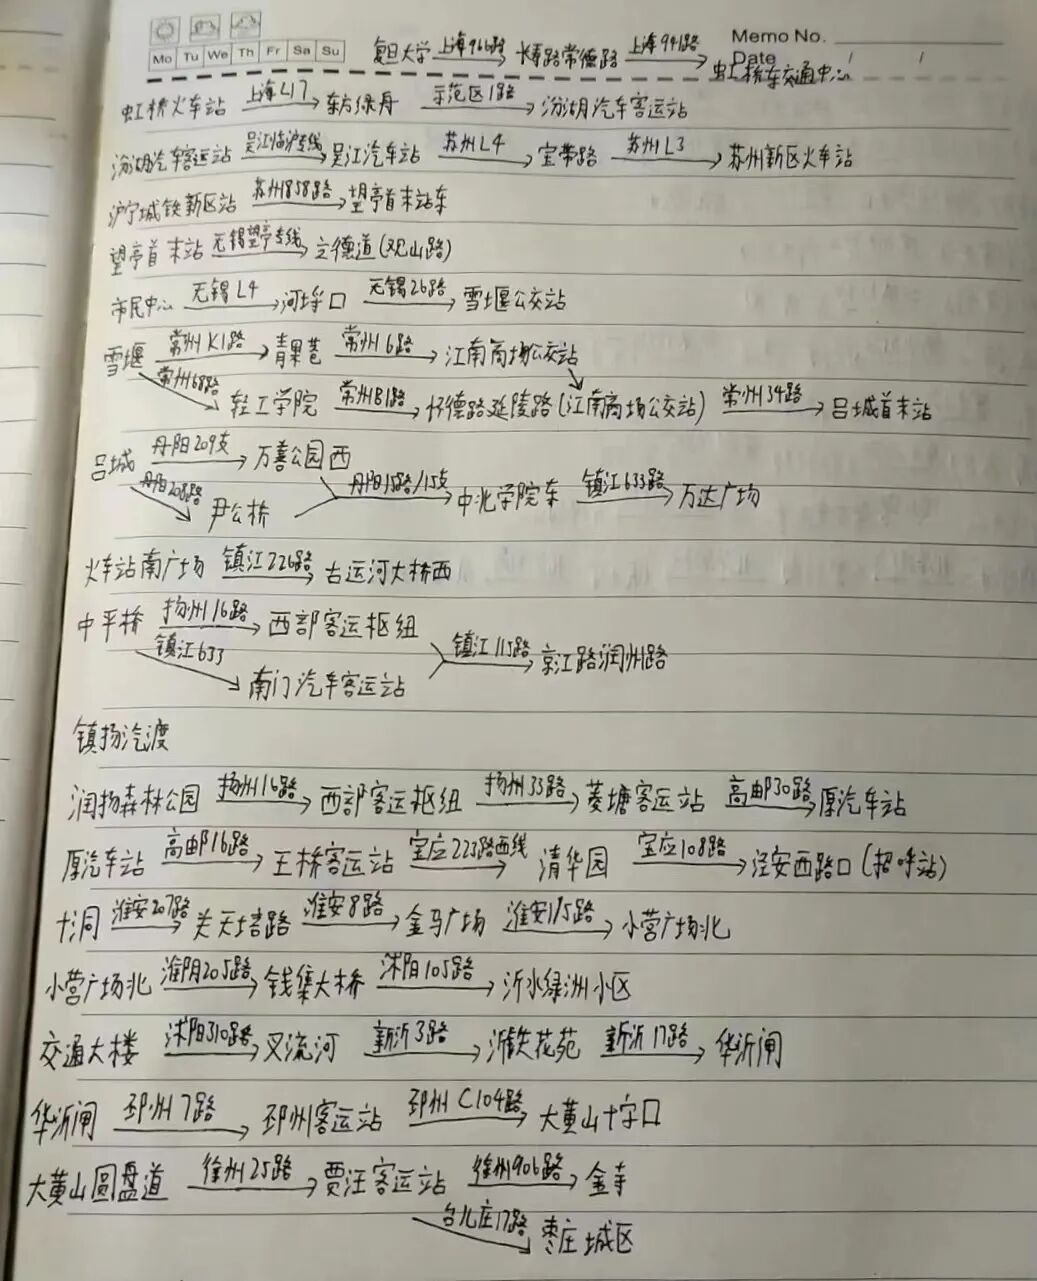 Memo No.
Mo Tu We Th Fr Sa Su
Date / /
复旦大学 上海966路→ 长寿路常德路 上海941路→ 虹桥东交通中心
虹桥火车站 上海L17→ 东方绿舟 示范区1路→ 汾湖汽车客运站
汾湖汽车客运站 吴江临沪专线→ 吴江汽车站 苏州L4→ 宝带路 苏州L3→ 苏州新区火车站
沪宁城铁新区站 苏州858路→ 望亭首末站东
望亭首末站 无锡望亭专线→ 立德道(观山路)
市民中心 无锡L4→ 河埒口 无锡26路→ 雪堰公交站
雪堰 常州K1路→ 青果巷 常州6路→ 江南商场公交站
常州68路→ 轻工学院 常州B1路→ 怀德路延陵路(江南商场公交站) 常州34路→ 吕城首末站
吕城 丹阳209支→ 万善公园西
丹阳208路→ 尹公桥 丹阳15路/15支→ 中北学院东 镇江633路→ 万达广场
火车站南广场 镇江226路→ 古运河大桥西
中平桥 扬州16路→ 西部客运枢纽
镇江633→ 南门汽车客运站 镇江115路→ 京江路润州路
镇扬汽渡
润扬森林公园 扬州16路→ 西部客运枢纽 扬州33路→ 菱塘客运站 高邮30路→ 原汽车站
原汽车站 高邮16路→ 王桥客运站 宝应223路西线→ 清华园 宝应108路→ 泾安西路口(招呼站)
十洞 淮安207路→ 关天培路 淮安8路→ 金马广场 淮安115路→ 小营广场北
小营广场北 淮阴205路→ 钱集大桥 沭阳105路→ 沂水绿洲小区
交通大楼 沭阳310路→ 叉流河 新沂3路→ 沂铁花苑 新沂17路→ 华沂闸
华沂闸 邳州7路→ 邳州客运站 邳州C104路→ 大黄山十字口
大黄山圆盘道 徐州25路→ 贾汪客运站 徐州906路→ 金寺
台儿庄17路→ 枣庄城区